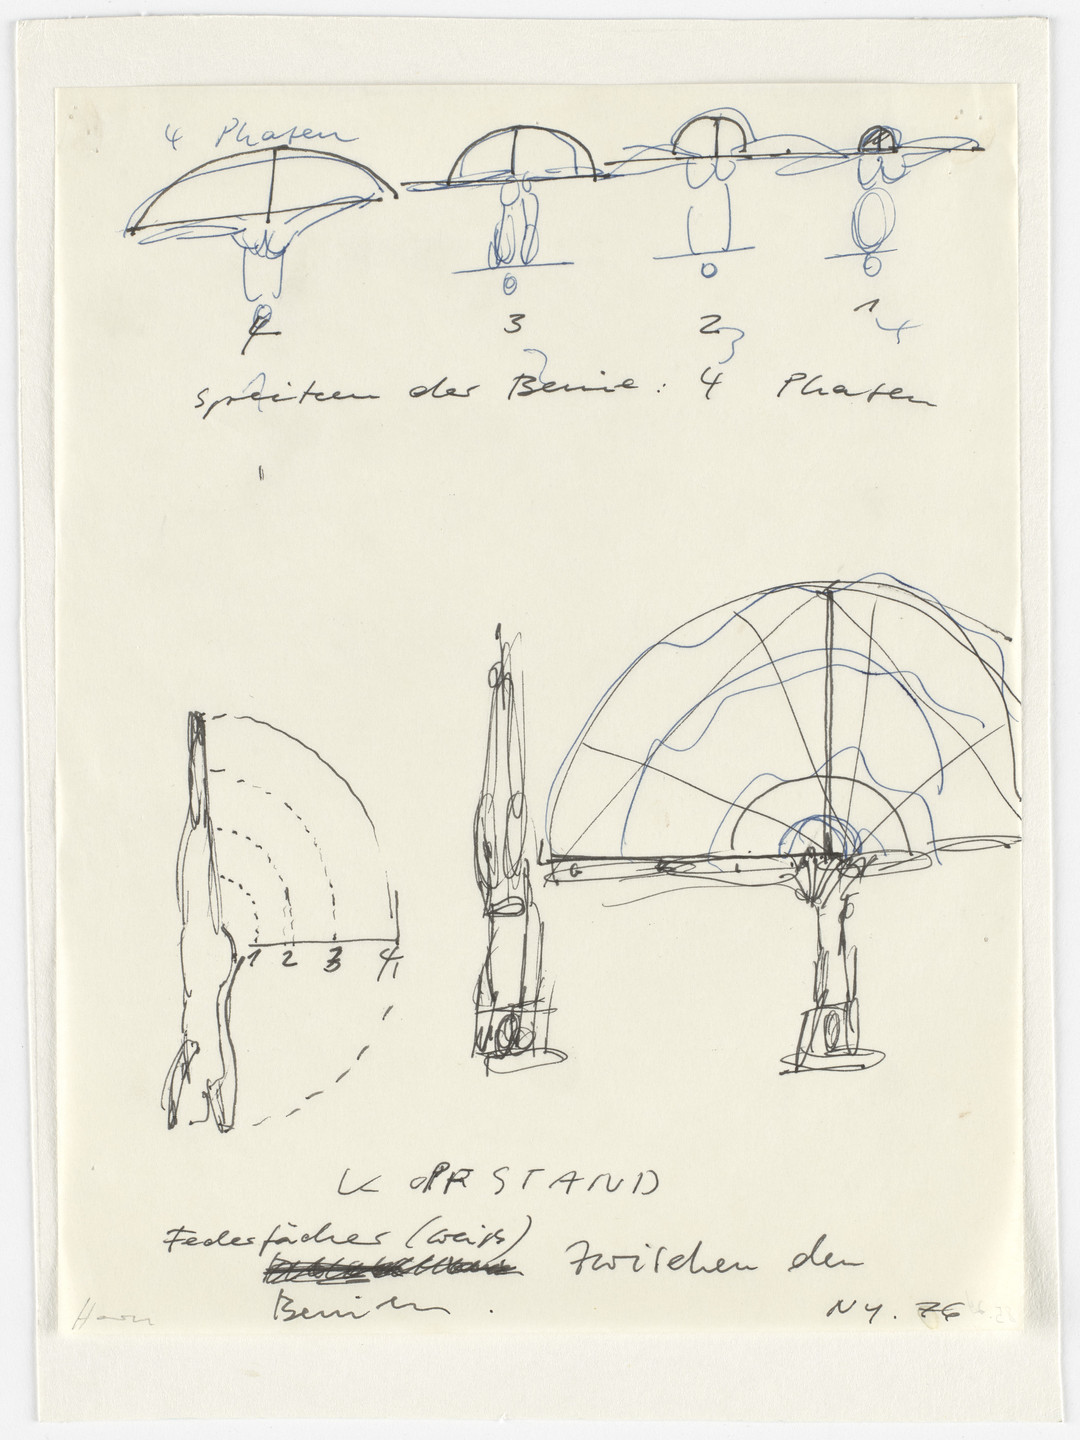 4 Phasen
4 3 2 1
3 4
spreitzen der Beine: 4 Phasen
1 2 3 4
KOPFSTAND
Federfächer (weiß)
zwischen den
Beinen.
NY. 76
Horn